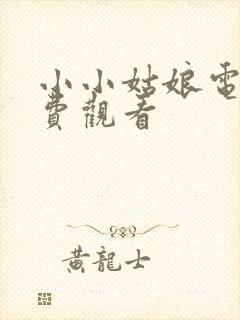 小小姑娘電
費觀看
黃龍士